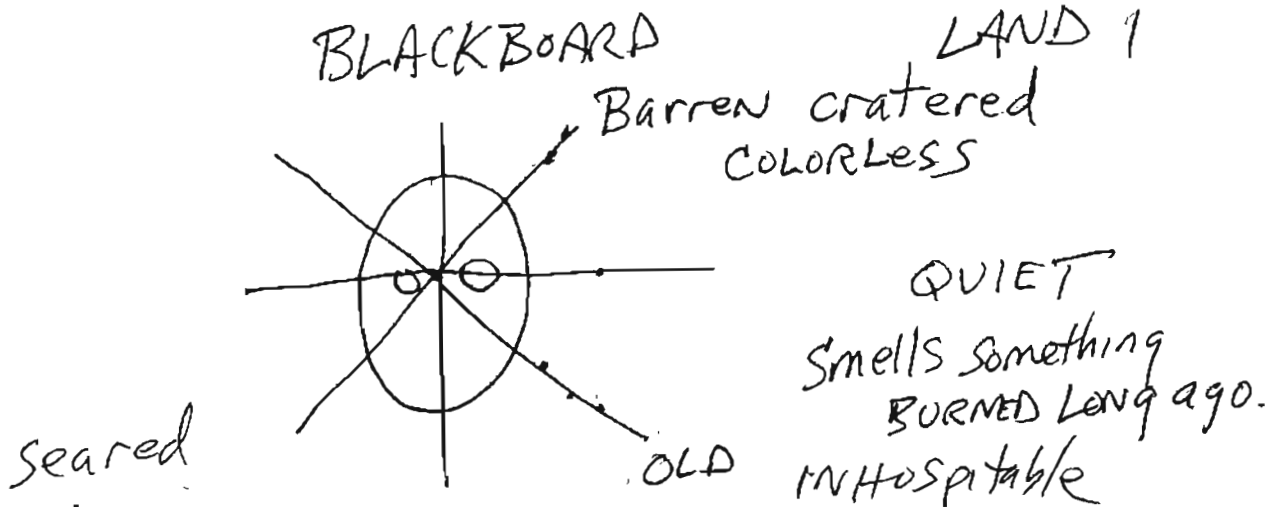 BLACKBOARD
LAND 1
Barren cratered
COLORLESS
QUIET
Smells something
BURNED LONG ago.
INHOSpitable
OLD
seared